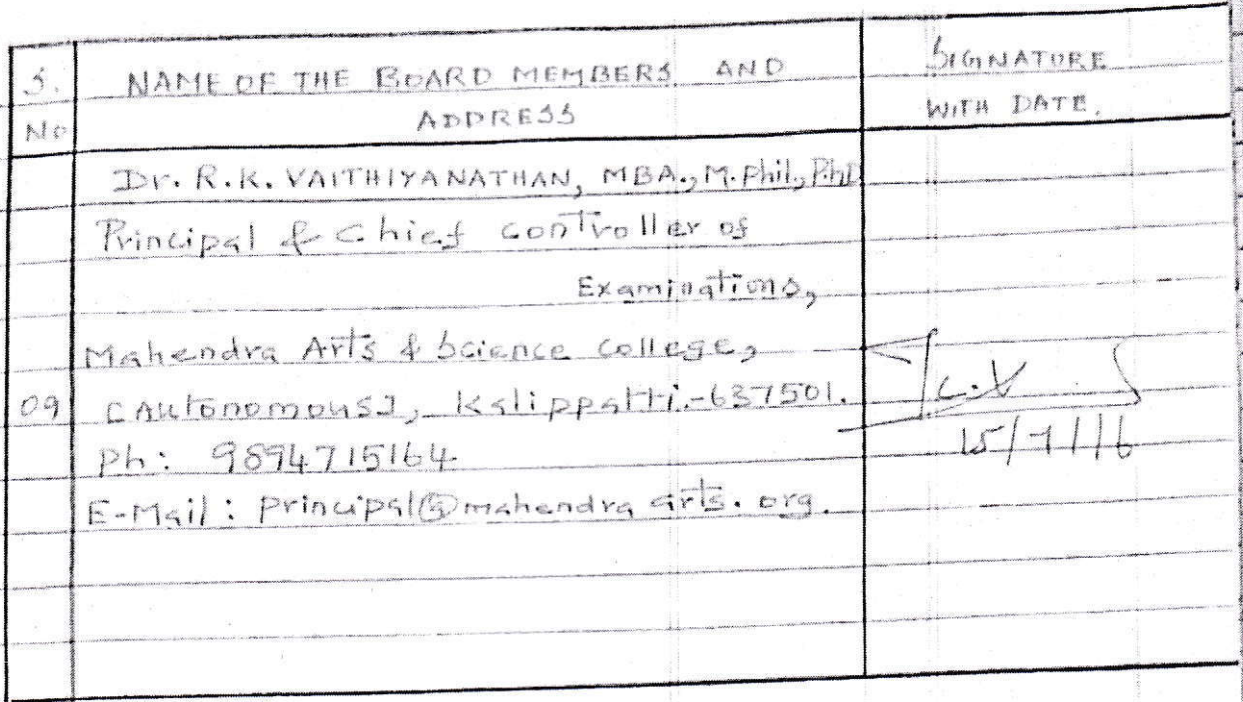 S. No
NAME OF THE BOARD MEMBERS AND
ADDRESS
SIGNATURE
WITH DATE.
Dr. R.K. VAITHIYANATHAN, MBA., M.Phil., PhD
Principal & Chief controller of
Examinations,
Mahendra Arts & Science College,
09
(Autonomous), Kalippatti.-637501.
Ph: 9894715164.
E-Mail: principal@mahendra arts. org.
15/7/16